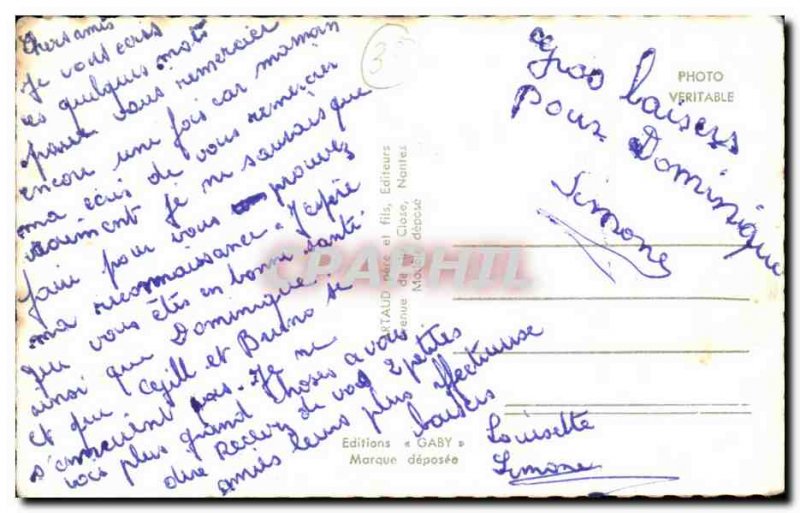 Chers amis
Je vous écris
ces quelques mots
pour vous remercier
encore une fois car maman
ma écris de vous remercier
vraiment je ne saurais que
faire pour vous prouvez
ma reconnaissance. J'espère
que vous êtes en bonne santé
ainsi que Dominique
et que et Bruno se
pas. Je ne
vois plus grand choses a vous
dire Recevez de vos 2 petites
amies leurs plus affectueuse
baisers
Louisette
Simone
Gros baisers
pour Dominique
Simone
3
PHOTO
VERITABLE
ARTAUD père et fils, Editeurs
Avenue de la Close, Nantes
Modèle déposé
Editions « GABY »
Marque déposée
CPAPHIL